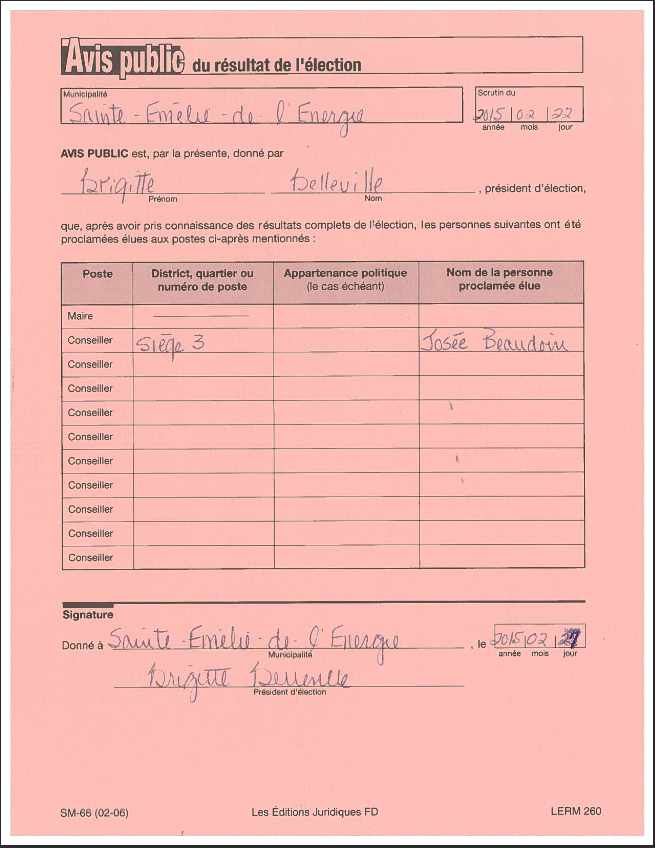 Avis public du résultat de l'élection
Municipalité
Sainte-Emélie-de-l'Energie
Scrutin du
2015 02 22
année mois jour
AVIS PUBLIC est, par la présente, donné par
Brigitte Belleville , président d'élection,
Prénom Nom
que, après avoir pris connaissance des résultats complets de l'élection, les personnes suivantes ont été
proclamées élues aux postes ci-après mentionnés :
Poste District, quartier ou numéro de poste Appartenance politique (le cas échéant) Nom de la personne proclamée élue
Maire
Conseiller Siège 3 Josée Beaudoin
Conseiller
Conseiller
Conseiller
Conseiller
Conseiller
Conseiller
Conseiller
Conseiller
Conseiller
Signature
Donné à Sainte-Emélie-de-l'Energie , le 2015 02
Municipalité année mois jour
Brigitte Belleville
Président d'élection
SM-66 (02-06) Les Éditions Juridiques FD LERM 260